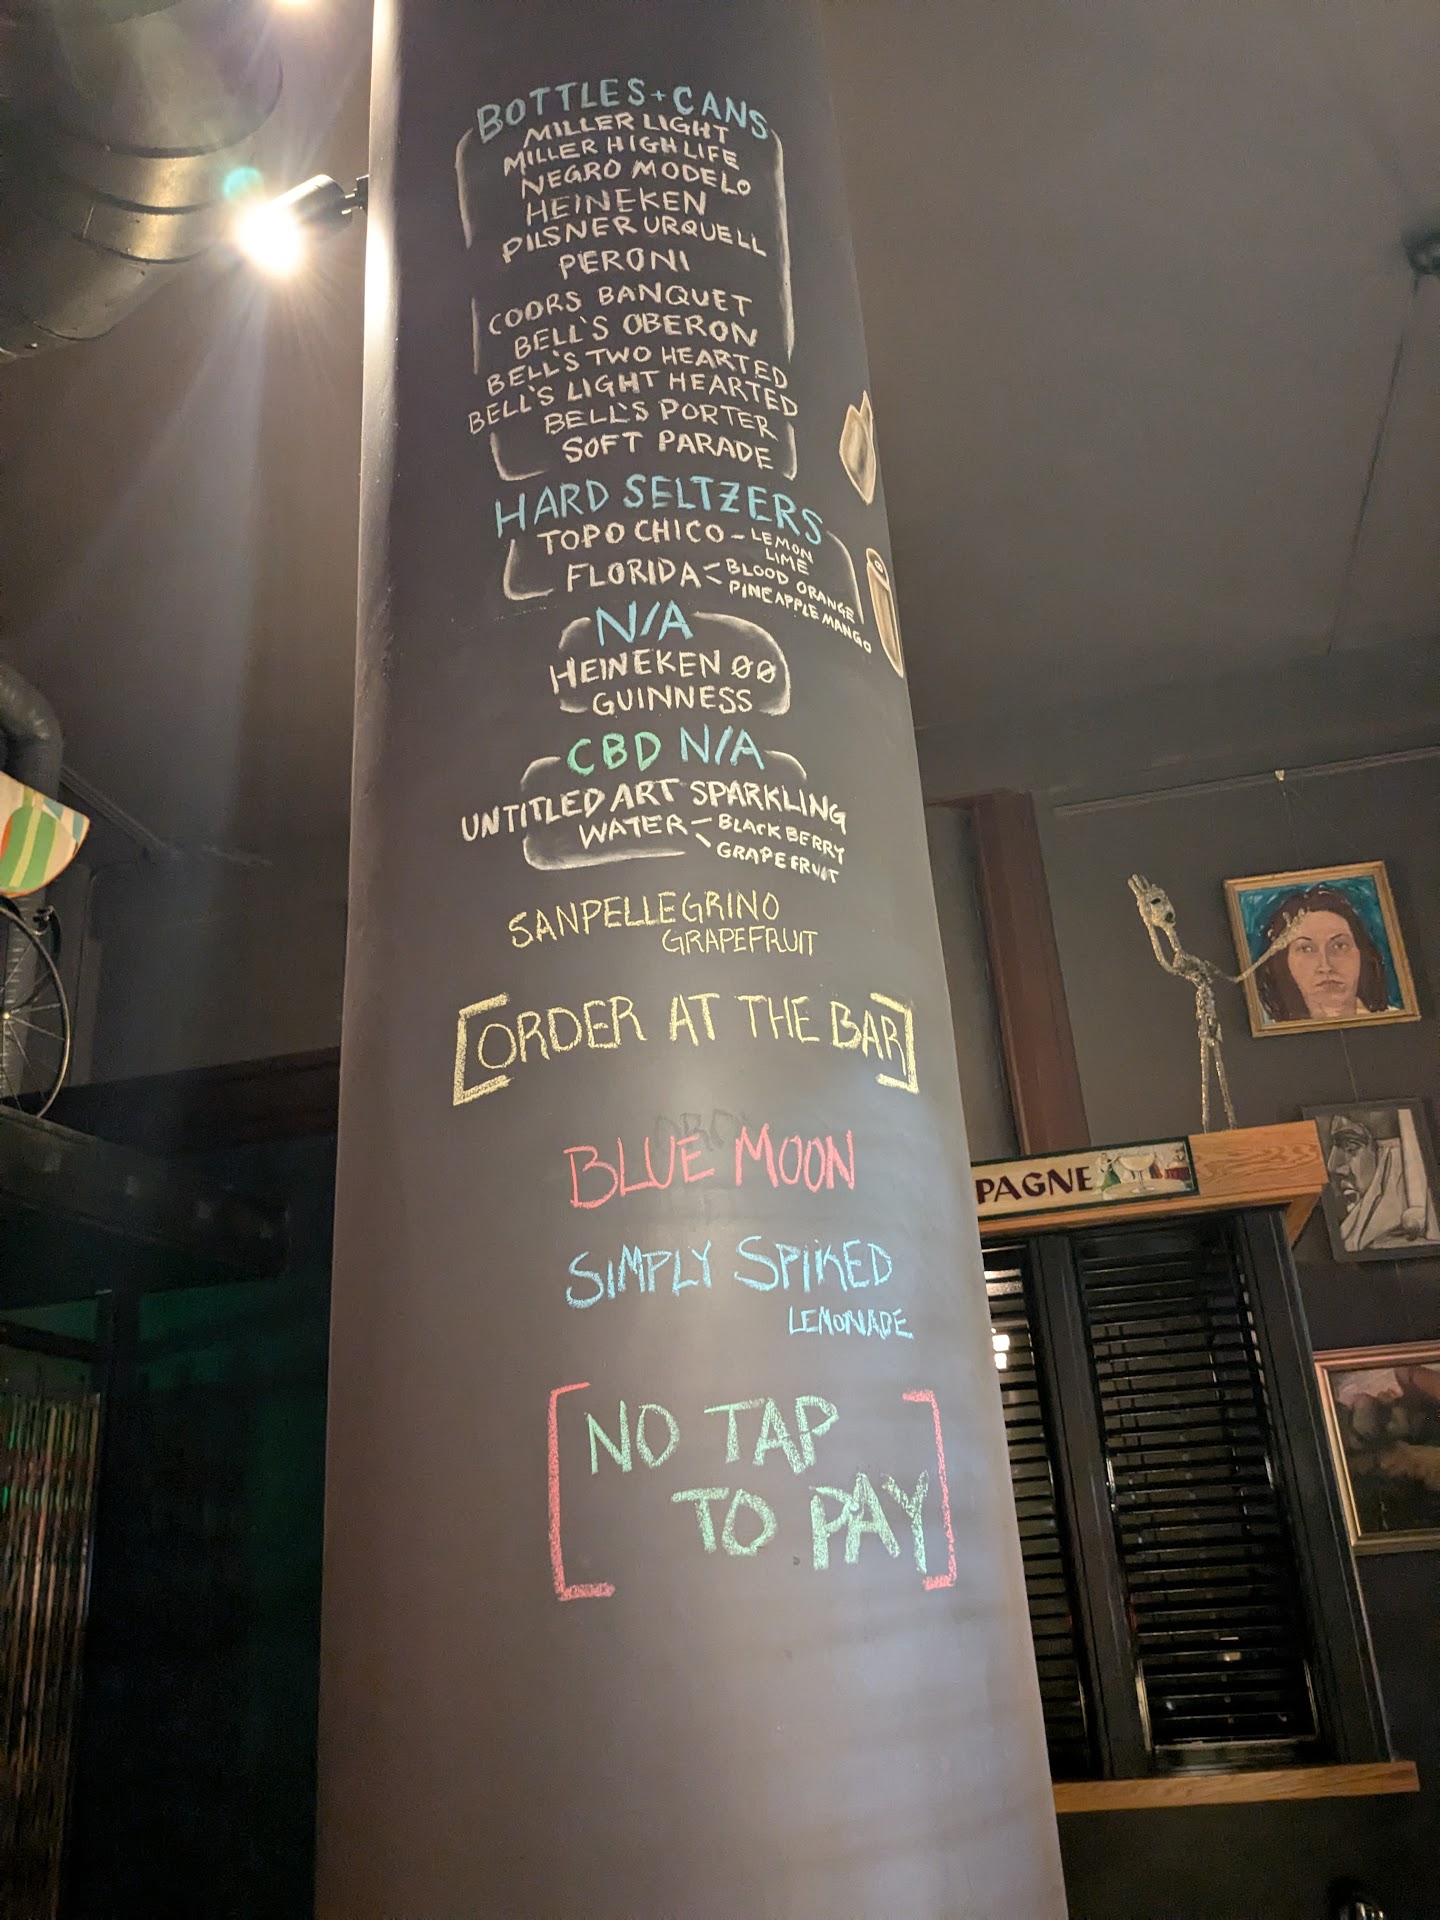 BOTTLES + CANS
MILLER LIGHT
MILLER HIGH LIFE
NEGRO MODELO
HEINEKEN
PILSNER URQUELL
PERONI
COORS BANQUET
BELL'S OBERON
BELL'S TWO HEARTED
BELL'S LIGHT HEARTED
BELL'S PORTER
SOFT PARADE
HARD SELTZERS
TOPO CHICO - LEMON
LIME
FLORIDA < BLOOD ORANGE
PINEAPPLE MANGO
N/A
HEINEKEN 00
GUINNESS
CBD N/A
UNTITLED ART SPARKLING
WATER - BLACKBERRY
GRAPEFRUIT
SANPELLEGRINO
GRAPEFRUIT
[ORDER AT THE BAR]
BLUE MOON
PAGNE
SIMPLY SPIKED
LEMONADE
[NO TAP
TO PAY]